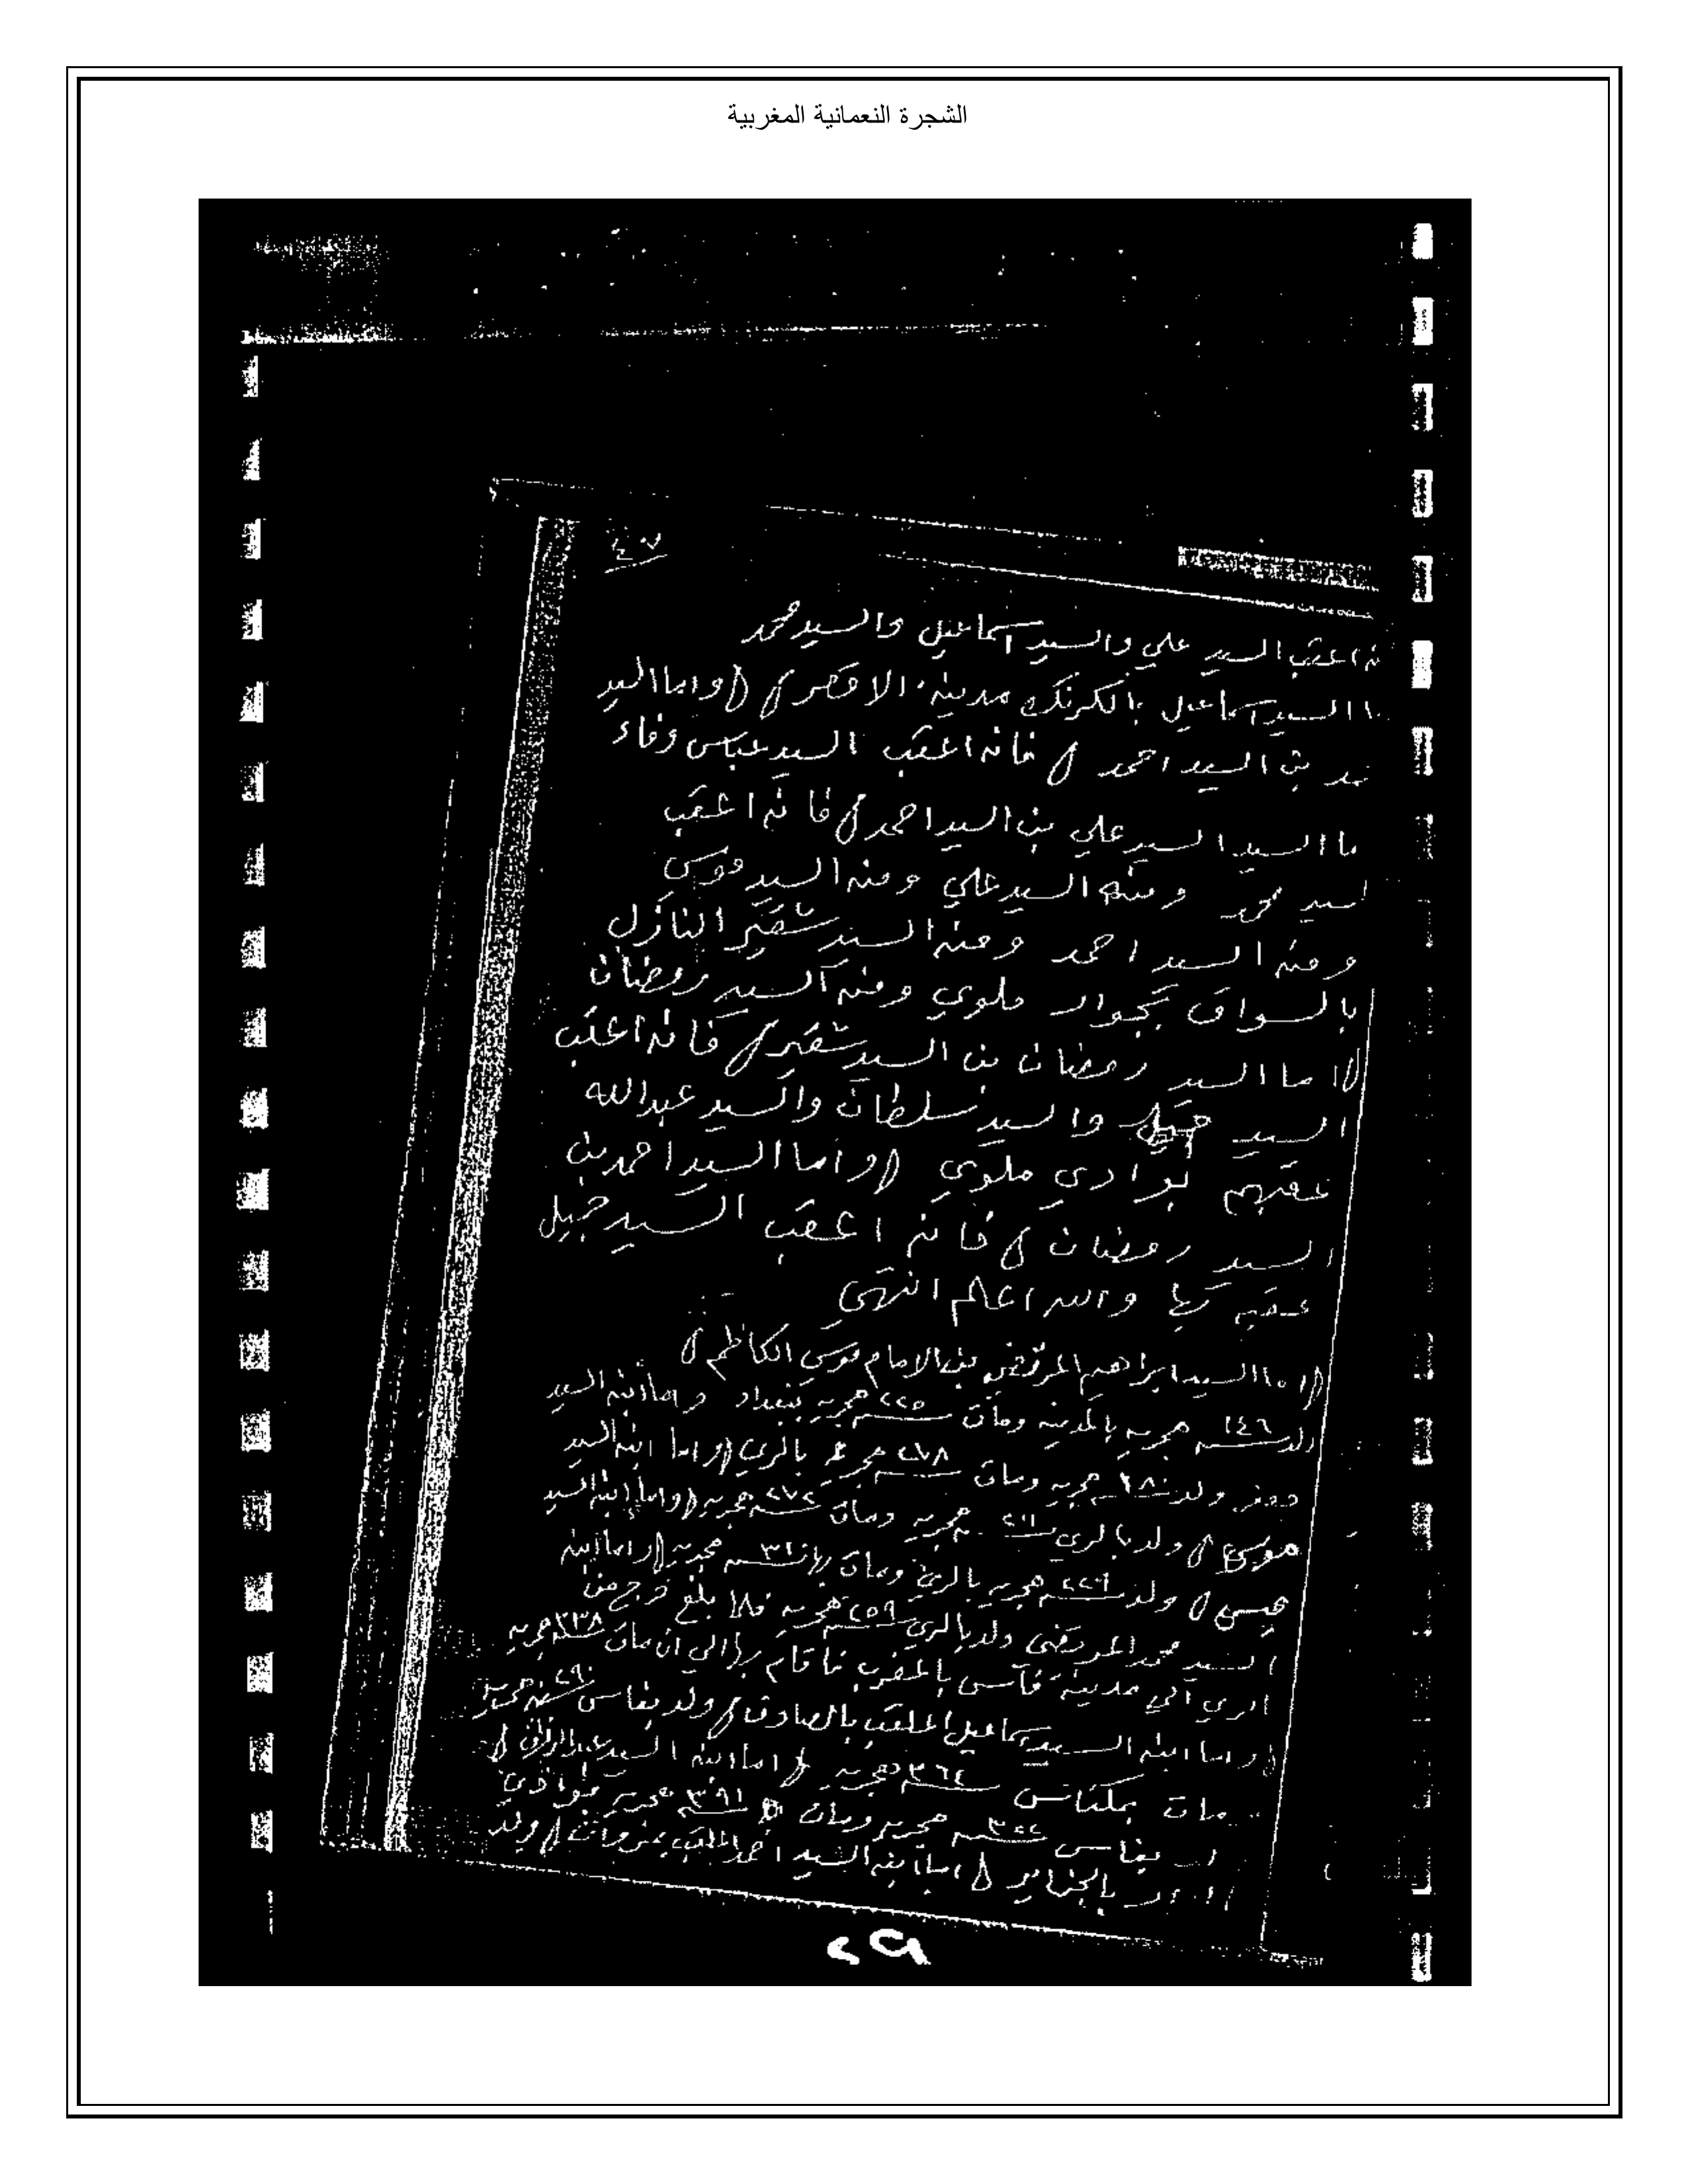 الشجرة النعمانية المغربية
اعقب السيد علي والسيد اسماعيل والسيد محمد
السيد اسماعيل بالكرنك مدينة الاقصر واما السيد
بن السيد احمد فانه اعقب السيد عباس وفاء
السيد السيد علي بن السيد احمد فانه اعقب
محمد ومنه السيد علي ومنه السيد موسى
ومنه السيد احمد ومنه السيد شقير النازل
بالسواق بجوار ملوي ومنه السيد رمضان
اما السيد رمضان بن السيد شقير فانه اعقب
السيد والسيد سلطان والسيد عبدالله
عقبهم بوادي ملوي واما السيد احمد بن
السيد رمضان فانه اعقب السيد جبيل
عقبه بها والله اعلم انتهى
اما السيد ابراهيم المرتضى بن الامام موسى الكاظم
ولد سنة ١٤٦ هجريه بالمدينه ومات سنة ٢٢٥ هجريه ببغداد واما ابنه السيد
جعفر ولد سنة هجريه ومات سنة ٢٧٨ بالري واما ابنه السيد
موسى ولد بالري سنة هجريه ومات سنة ٢٧٢ هجريه واما ابنه السيد
عيسى ولد سنة هجريه بالري ومات بها سنة هجريه واما ابنه
السيد محمد المرتضى ولد بالري سنة ٢٥٩ هجريه فلما بلغ خرج من
الري الي مدينة فاس بالمغرب فاقام بها الي ان مات سنة ٣٣٨ هجريه
واما ابنه السيد اسماعيل الملقب بالصادق ولد بفاس سنة ٢٩٠ هجريه
ومات بمكناس سنة ٣٦٤ هجريه واما ابنه السيد عبدالرزاق
بفاس سنة ٣٢٢ هجريه ومات سنة ٣٩١ هجريه بوادي
بالجزاير اما ابنه السيد احمد الملقب ولد
٢٩